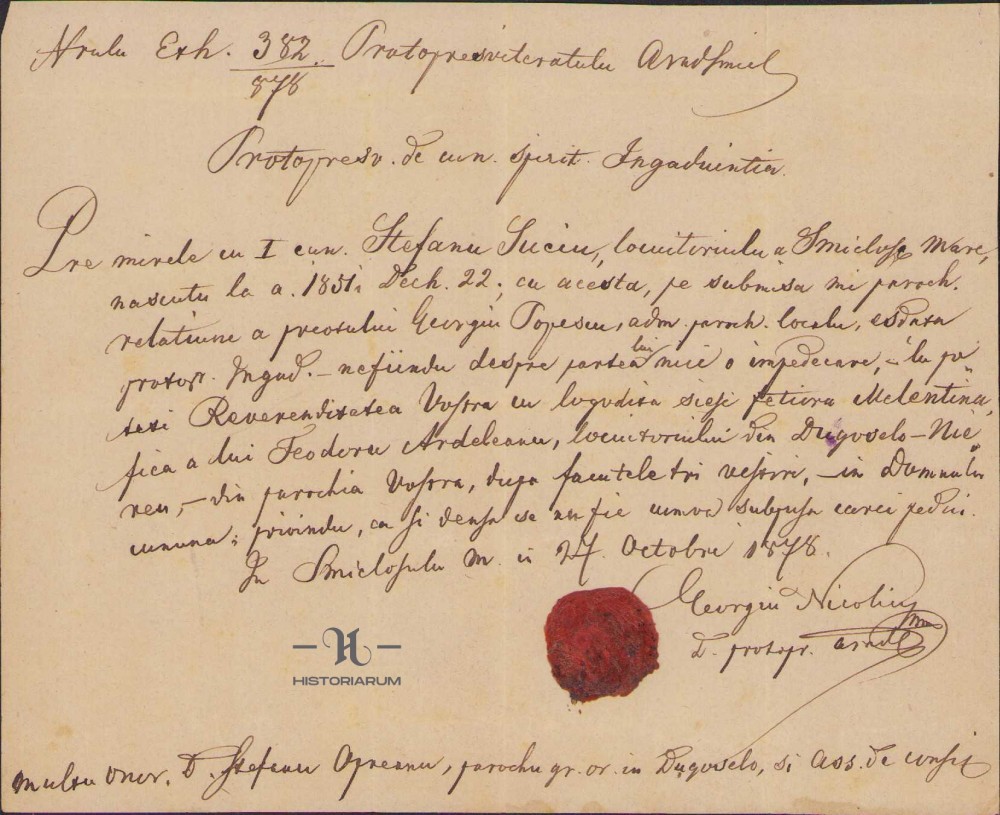 Nrulu Exh. 382. Protopresviteratulu
878
Protopresv. de cun. spirit. Ingaduintia.
Pre mirele cu I cun. Stefanu Suciu, locuitoriulu a Smiclosp Mare,
nascutu la a. 1851, Dech. 22, cu acesta, pe submisa mi paroch.
relatiune a preotului Georgiu Popescu, adm. paroch. localu, esdata
protopr. Ingad. - nefiindu despre partea lui nici o impedecare, - lu po
teti Reverenditatea Vostra cu logodita siesi fetiora Melentina,
fica a lui Teodoru Ardeleanu, locuitoriului din Dugoselo-Nic
reu, - din parochia Vostra, dupa facutele tri vestiri, - in Domnulu
cununa; privindu, ca si densa se nu fie cumva subpusa carei pedici.
In Smiclosulu M. in 27. Octobri 1878.
Georgiu Nicolici
D. protopr.
-H-
HISTORIARUM
Multu Onor. D. Stefanu Opreanu, parochu gr. or. in Dugoselo, si Ass. de consist